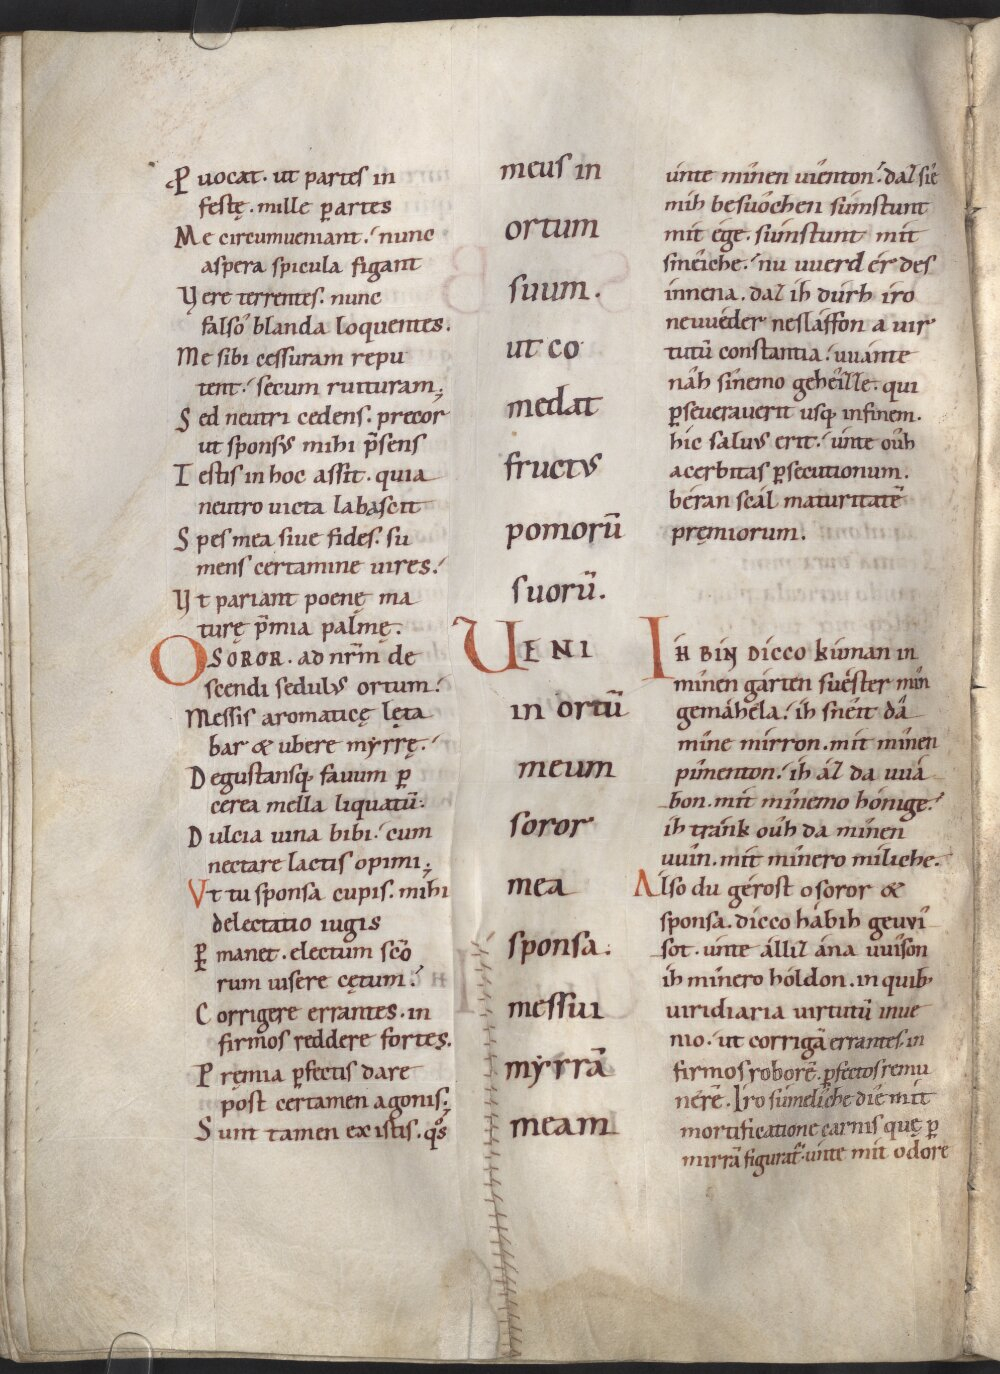 P uocat. ut partes in
festę. mille ꝑartes
Me circumueniant. nunc
aspera spicula figant
Vere terrentes. nunc
falso blanda loquentes.
Me sibi cessuram repu
tent. secum ruitturam;
Sed neutri cedens. precor
ut sponsus mihi p̄sens
Testis in hoc assit. quia
neutro uicta labascit
Spes mea siue fides. su
mens certamine uires.
Vt pariant poenę ma
turę p̄mia palmę.
O SOROR. ad nr̄m de
scendi sedulus ortum.
Messis aromaticę lęta
bar & ubere myrrę.
Degustansq; fauum ꝑ
cerea mella liquatū.
Dulcia uina bibi. cum
nectare lactis opimi;
Vt tu sponsa cupis. mihi
delectatio iugis
Ꝑmanet. electum sc̄o
rum uisere cętum.
Corrigere errantes. in
firmos reddere fortes.
Pręmia ꝑfectis dare
post certamen agonis;
Sunt tamen ex istis. qͦs
meus in
ortum
suum.
ut co
medat
fructus
pomorū
suorū.
UENI
in ortū
meum
soror
mea
sponsa.
messui
myrrā
meam
únte mînen uîenton. dáz sîe
mih besuôchen súmstunt
mit ége. súmstunt mit
smêiche. nu uuerd ér des
innena. dáz ih dúrh íro
neuuéder neslâffon a uir
tutū constantia. uuánte
nâh sînemo gehêizze. qui
ꝑseuerauerit usq; in finem.
hic saluus erit. únte oûh
acerbitas ꝑsecutionum.
béran scál maturitatē
pręmiorum.
IH BIN Dicco kúman in
mînen gárten suéster mîn
gemáhela. íh snêit dâ
mîne mirron. mit mînen
pîmenton. íh âz da uuá
bon. mit mînemo hónige.
íh tránk oûh da mînen
uuîn. mit mînero míliche.
Also du gérost o soror &
sponsa. dicco hábih geuuî
sot. únte állíz ána uuîson
ih mînero hóldon. in quib;
uiridiaria uirtutū inue
nio. ut corrigā errantes. in
firmos roborē. ꝑfectos remu
nerē. Iro súmelîche dîe mit
mortificatione carnis quę ꝑ
mirrā figurat̄. únte mit odore